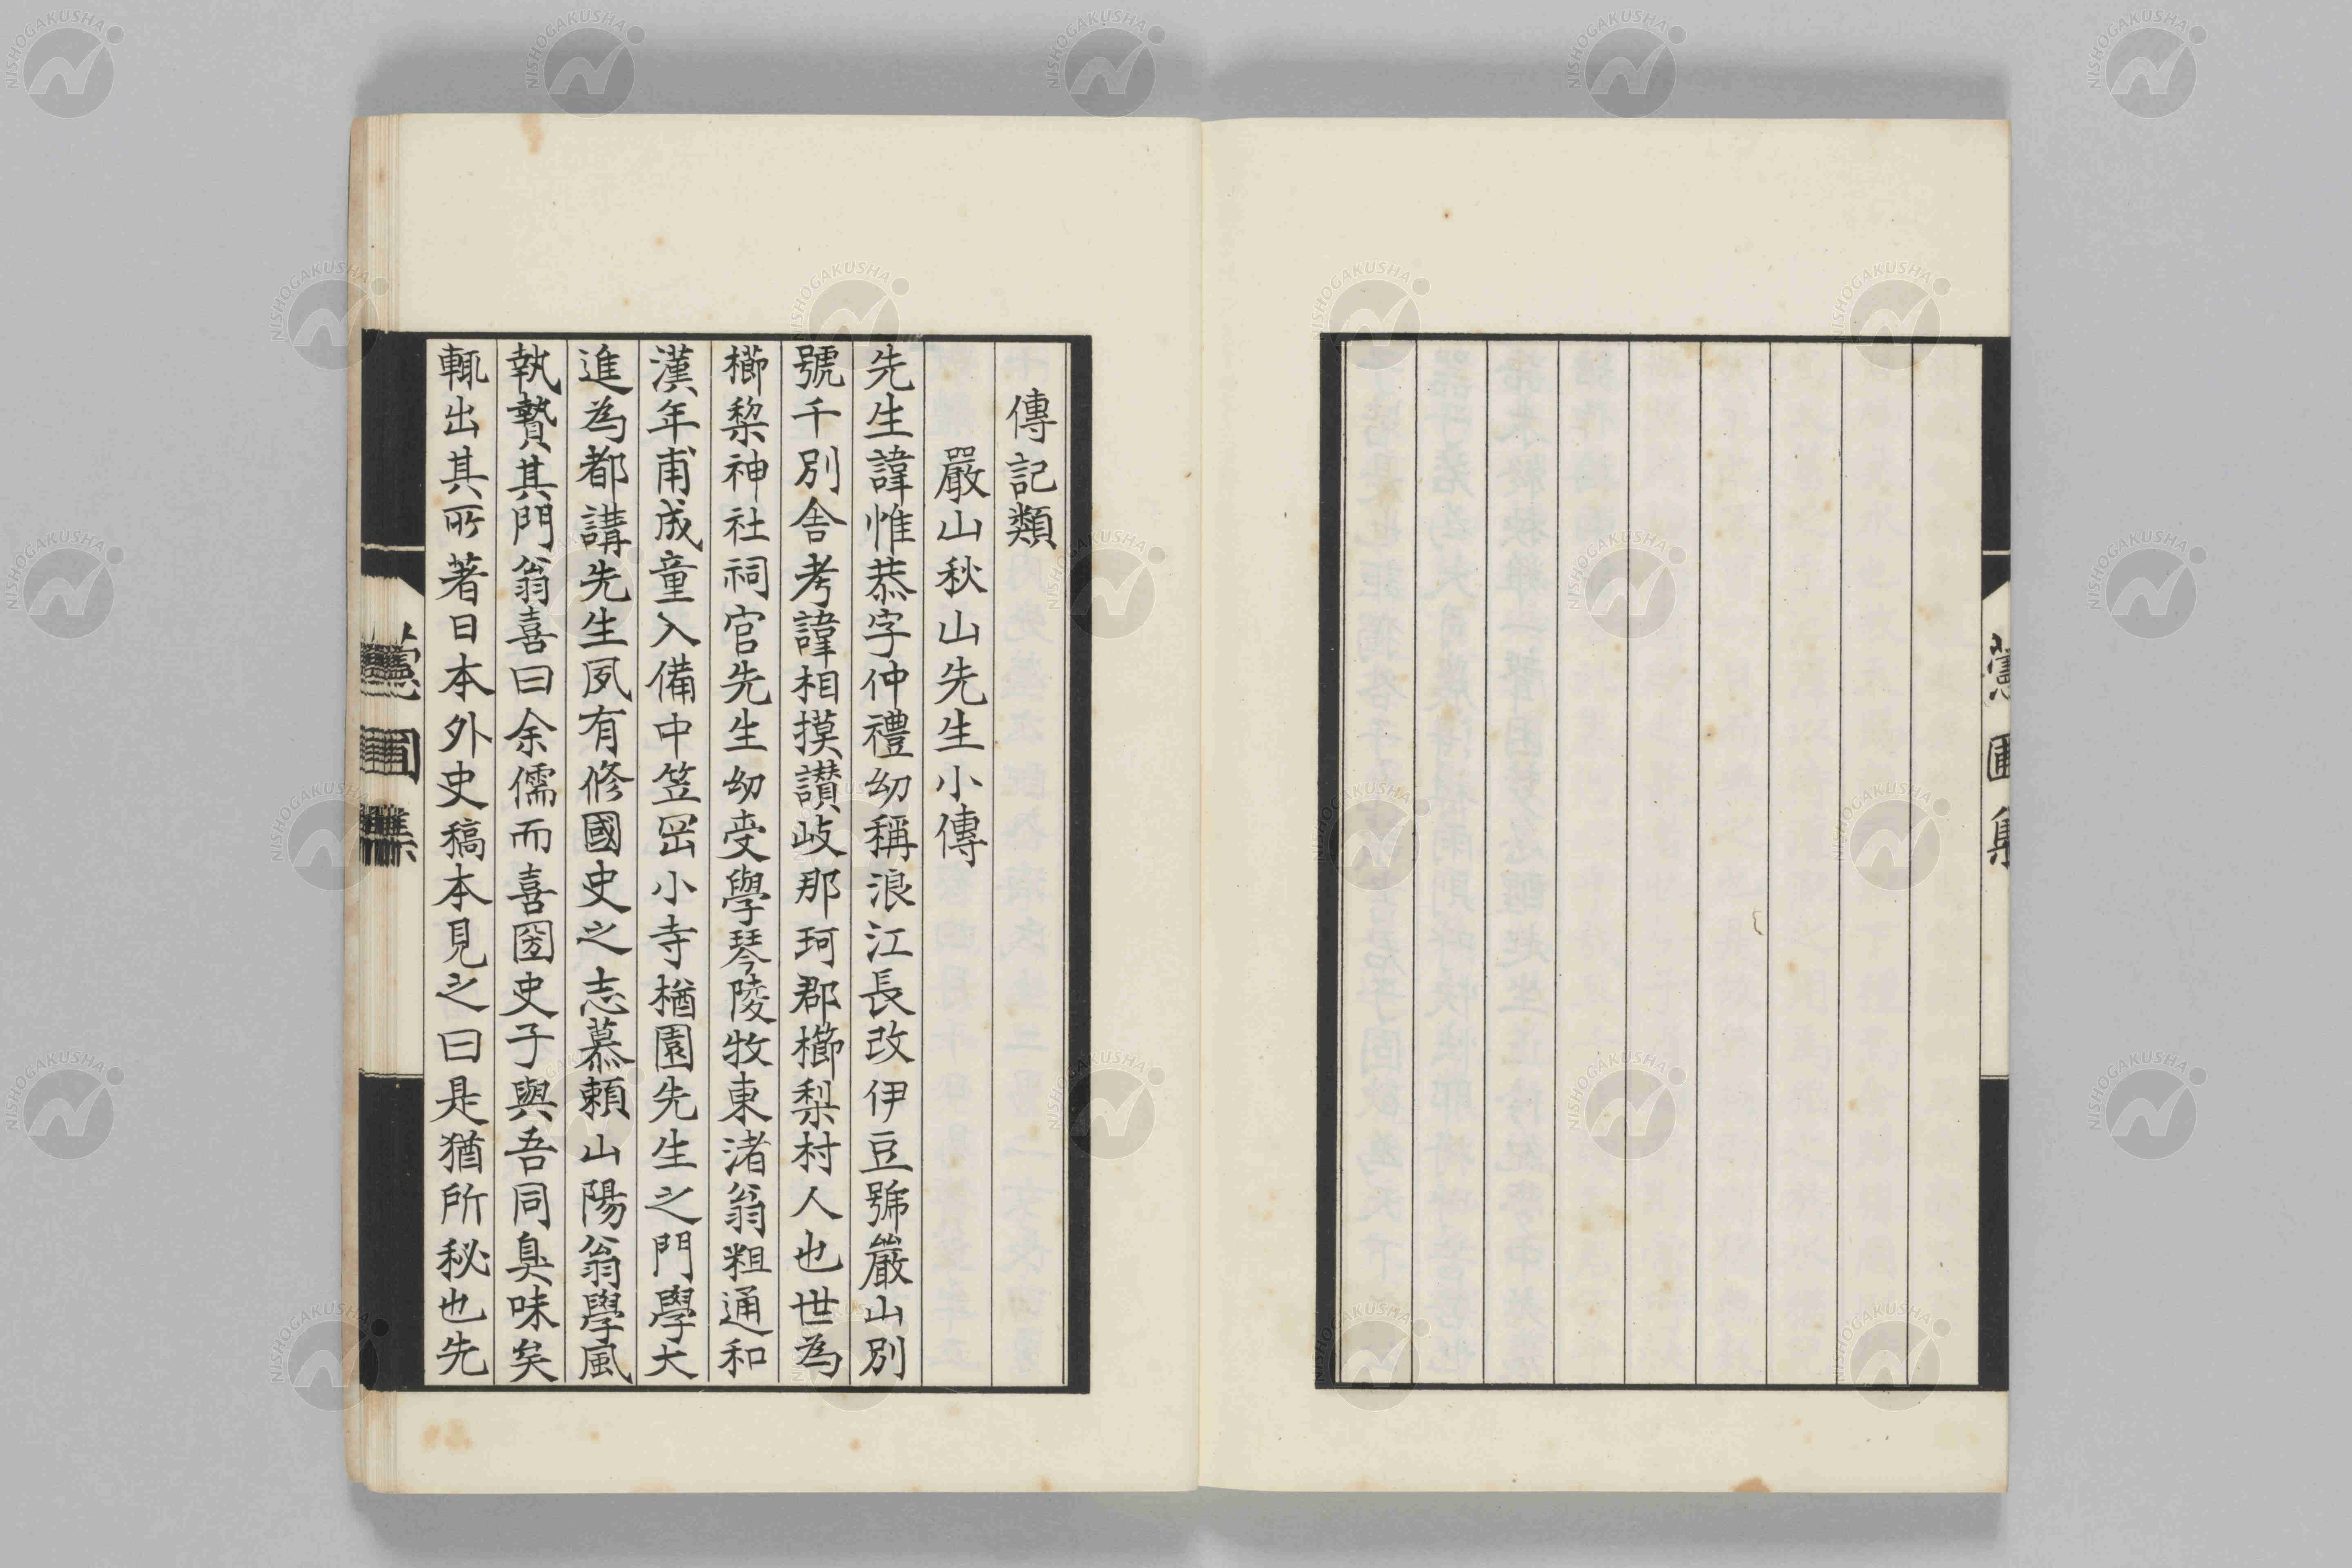 傳記類
嚴山秋山先生小傳
先生諱惟恭字仲禮幼稱浪江長改伊豆號巖山別
號千別舍考諱相摸讃岐那珂郡櫛梨村人也世為
櫛棃神社祠官先生幼受學琴陵牧東渚翁粗通和
漢年甫成童入備中笠岡小寺楢園先生之門學大
進為都講先生夙有修國史之志慕賴山陽翁學風
執贄其門翁喜曰余儒而喜圀史子與吾同臭味矣
輒出其所著日本外史稿本見之曰是猶所秘也先
圃集
NISHOGAKUSHA